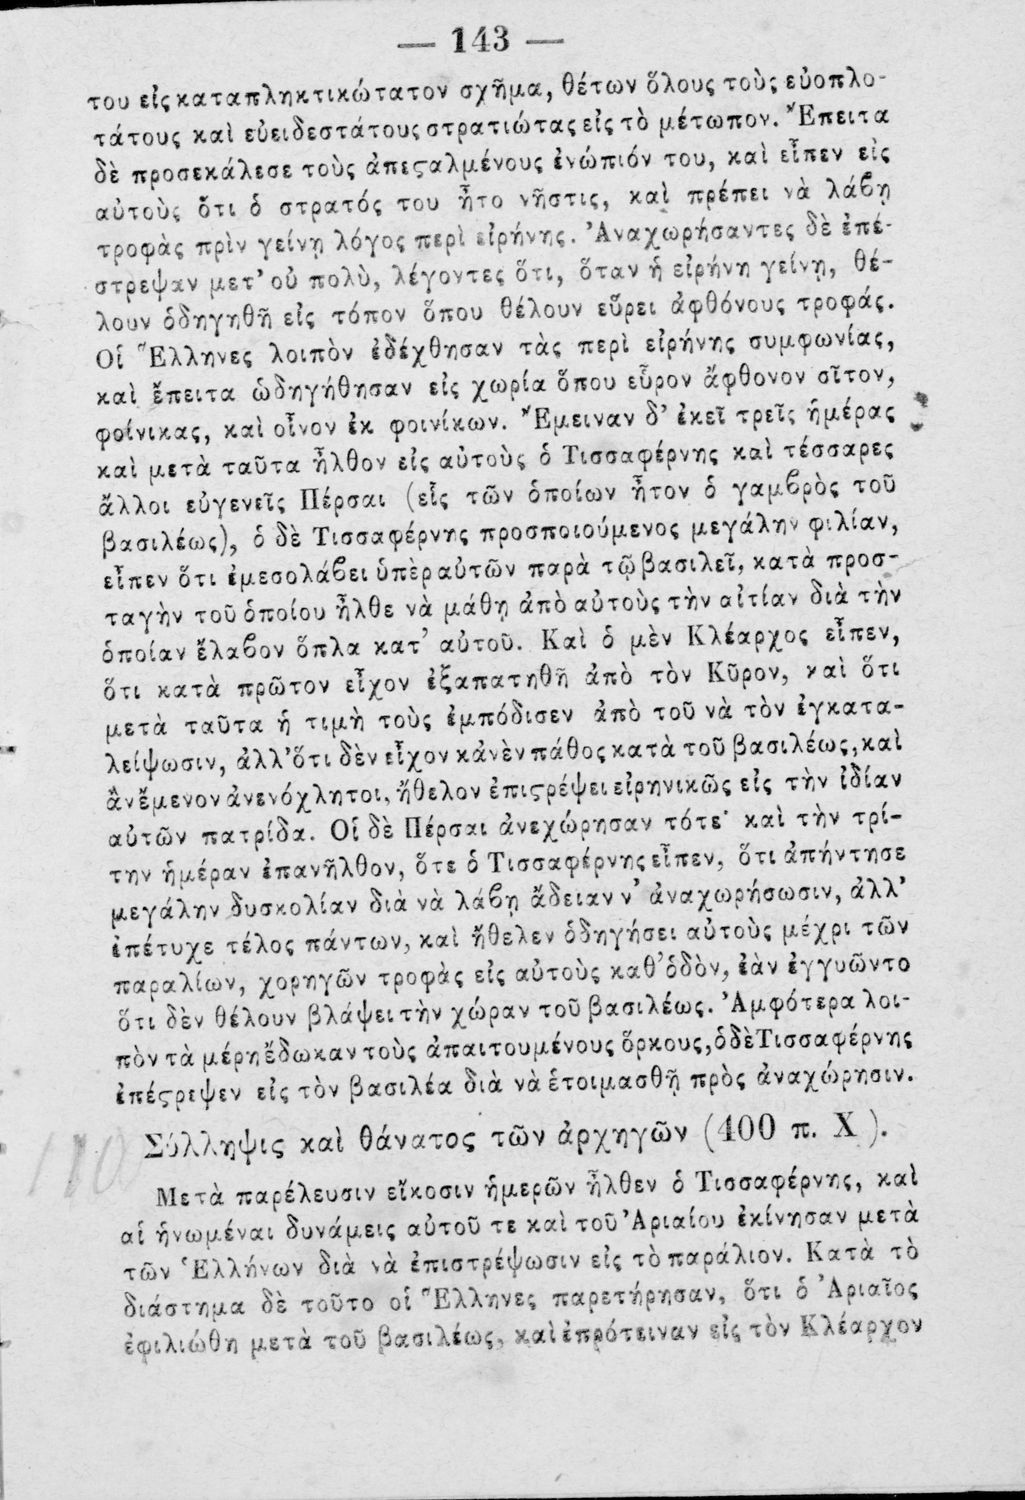 — 143 —
του εἰς καταπληκτικώτατον σχῆμα, θέτων ὅλους τοὺς εὐοπλο-
τάτους καὶ εὐειδεστάτους στρατιώτας εἰς τὸ μέτωπον. Ἔπειτα
δὲ προσεκάλεσε τοὺς ἀπεςαλμένους ἐνώπιόν του, καὶ εἶπεν εἰς
αὐτοὺς ὅτι ὁ στρατός του ἦτο νῆστις, καὶ πρέπει νὰ λάϐῃ
τροφὰς πρὶν γείνῃ λόγος περὶ εἰρήνης. Ἀναχωρήσαντες δὲ ἐπέ-
στρεψαν μετ' οὐ πολὺ, λέγοντες ὅτι, ὅταν ἡ εἰρήνη γείνῃ, θέ-
λουν ὁδηγηθῆ εἰς τόπον ὅπου θέλουν εὕρει ἀφθόνους τροφάς.
Οἱ Ἕλληνες λοιπὸν ἐδέχθησαν τὰς περὶ εἰρήνης συμφωνίας,
καὶ ἔπειτα ὡδηγήθησαν εἰς χωρία ὅπου εὗρον ἄφθονον σῖτον,
φοίνικας, καὶ οἶνον ἐκ φοινίκων. Ἔμειναν δ' ἐκεῖ τρεῖς ἡμέρας
καὶ μετὰ ταῦτα ἦλθον εἰς αὐτοὺς ὁ Τισσαφέρνης καὶ τέσσαρες
ἄλλοι εὐγενεῖς Πέρσαι (εἷς τῶν ὁποίων ἦτον ὁ γαμϐρὸς τοῦ
βασιλέως), ὁ δὲ Τισσαφέρνης προσποιούμενος μεγάλην φιλίαν,
εἶπεν ὅτι ἐμεσολάϐει ὑπὲρ αὐτῶν παρὰ τῷ βασιλεῖ, κατὰ προσ-
ταγὴν τοῦ ὁποίου ἦλθε νὰ μάθῃ ἀπὸ αὐτοὺς τὴν αἰτίαν διὰ τὴν
ὁποίαν ἔλαϐον ὅπλα κατ' αὐτοῦ. Καὶ ὁ μὲν Κλέαρχος εἶπεν,
ὅτι κατὰ πρῶτον εἶχον ἐξαπατηθῆ ἀπὸ τὸν Κῦρον, καὶ ὅτι
μετὰ ταῦτα ἡ τιμὴ τοὺς ἐμπόδισεν ἀπὸ τοῦ νὰ τὸν ἐγκατα-
λείψωσιν, ἀλλ' ὅτι δὲν εἶχον κἀνὲν πάθος κατὰ τοῦ βασιλέως, καὶ
ἂν ἔμενον ἀνενόχλητοι, ἤθελον ἐπιςρέψει εἰρηνικῶς εἰς τὴν ἰδίαν
αὐτῶν πατρίδα. Οἱ δὲ Πέρσαι ἀνεχώρησαν τότε· καὶ τὴν τρί-
την ἡμέραν ἐπανῆλθον, ὅτε ὁ Τισσαφέρνης εἶπεν, ὅτι ἀπήντησε
μεγάλην δυσκολίαν διὰ νὰ λάϐῃ ἄδειαν ν' ἀναχωρήσωσιν, ἀλλ'
ἐπέτυχε τέλος πάντων, καὶ ἤθελεν ὁδηγήσει αὐτοὺς μέχρι τῶν
παραλίων, χορηγῶν τροφὰς εἰς αὐτοὺς καθ' ὁδὸν, ἐὰν ἐγγυῶντο
ὅτι δὲν θέλουν βλάψει τὴν χώραν τοῦ βασιλέως. Ἀμφότερα λοι-
πὸν τὰ μέρη ἔδωκαν τοὺς ἀπαιτουμένους ὅρκους, ὁ δὲ Τισσαφέρνης
ἐπέςρεψεν εἰς τὸν βασιλέα διὰ νὰ ἑτοιμασθῇ πρὸς ἀναχώρησιν.
110 Σύλληψις καὶ θάνατος τῶν ἀρχηγῶν (400 π. Χ ).
Μετὰ παρέλευσιν εἴκοσιν ἡμερῶν ἦλθεν ὁ Τισσαφέρνης, καὶ
αἱ ἡνωμέναι δυνάμεις αὐτοῦ τε καὶ τοῦ Ἀριαίου ἐκίνησαν μετὰ
τῶν Ἑλλήνων διὰ νὰ ἐπιστρέψωσιν εἰς τὸ παράλιον. Κατὰ τὸ
διάστημα δὲ τοῦτο οἱ Ἕλληνες παρετήρησαν, ὅτι ὁ Ἀριαῖος
ἐφιλιώθη μετὰ τοῦ βασιλέως, καὶ ἐπρότειναν εἰς τὸν Κλέαρχον